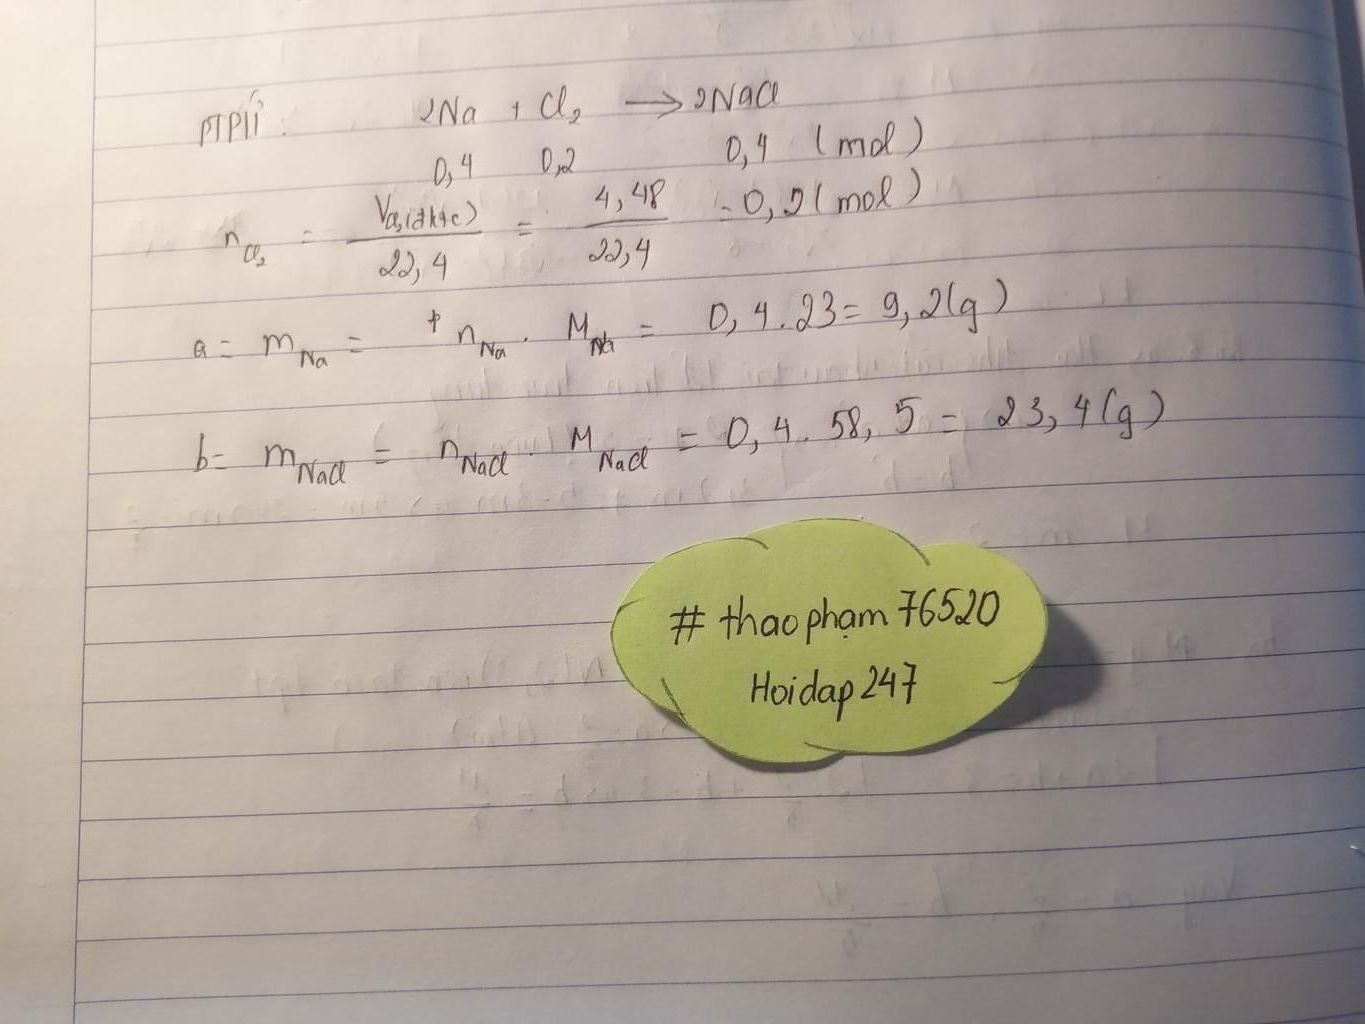 PTPƯ: 2Na + Cl₂ → 2NaCl
0,4 0,2 0,4 (mol)
n Cl₂ = V Cl₂(đktc) / 22,4 = 4,48 / 22,4 = 0,2 (mol)
a = m Na = n Na . M Na = 0,4 . 23 = 9,2 (g)
b = m NaCl = n NaCl . M NaCl = 0,4 . 58,5 = 23,4 (g)
# thaophạm 76520
Hoidap 247